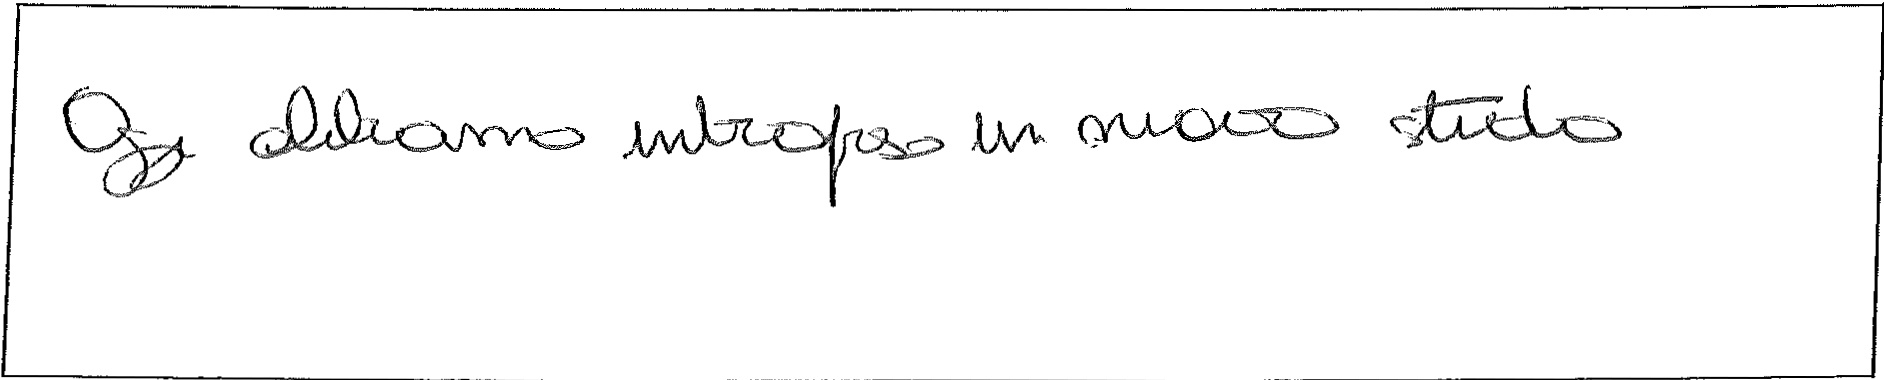 Oggi abbiamo intrapreso un nuovo studio